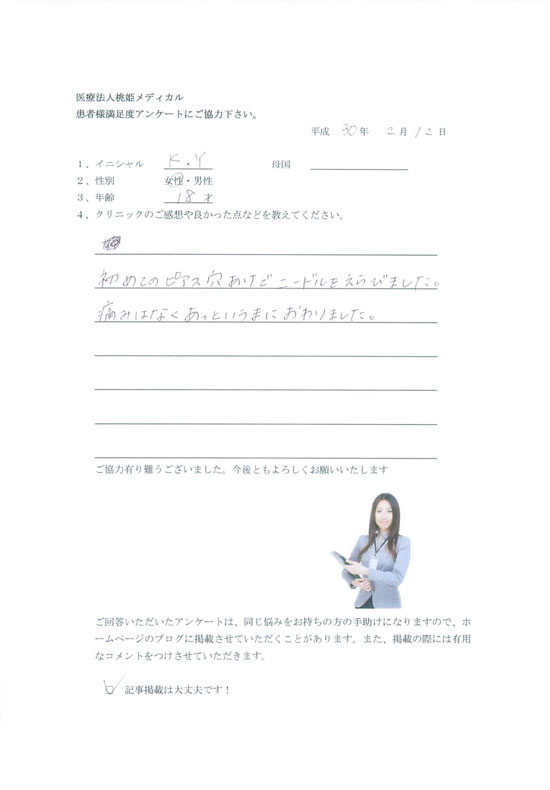 医療法人桃姫メディカル
患者様満足度アンケートにご協力下さい。
平成 30年 2月 12日
1、イニシャル K．Y 母国
2、性別 女性・男性
3、年齢 18才
4、クリニックのご感想や良かった点などを教えてください。
初めてのピアス穴あけでニードルをえらびました。
痛みはなくあっというまにおわりました。
ご協力有り難うございました。今後ともよろしくお願いいたします
ご回答いただいたアンケートは、同じ悩みをお持ちの方の手助けになりますので、ホ
ームページのブログに掲載させていただくことがあります。また、掲載の際には有用
なコメントをつけさせていただきます。
記事掲載は大丈夫です！